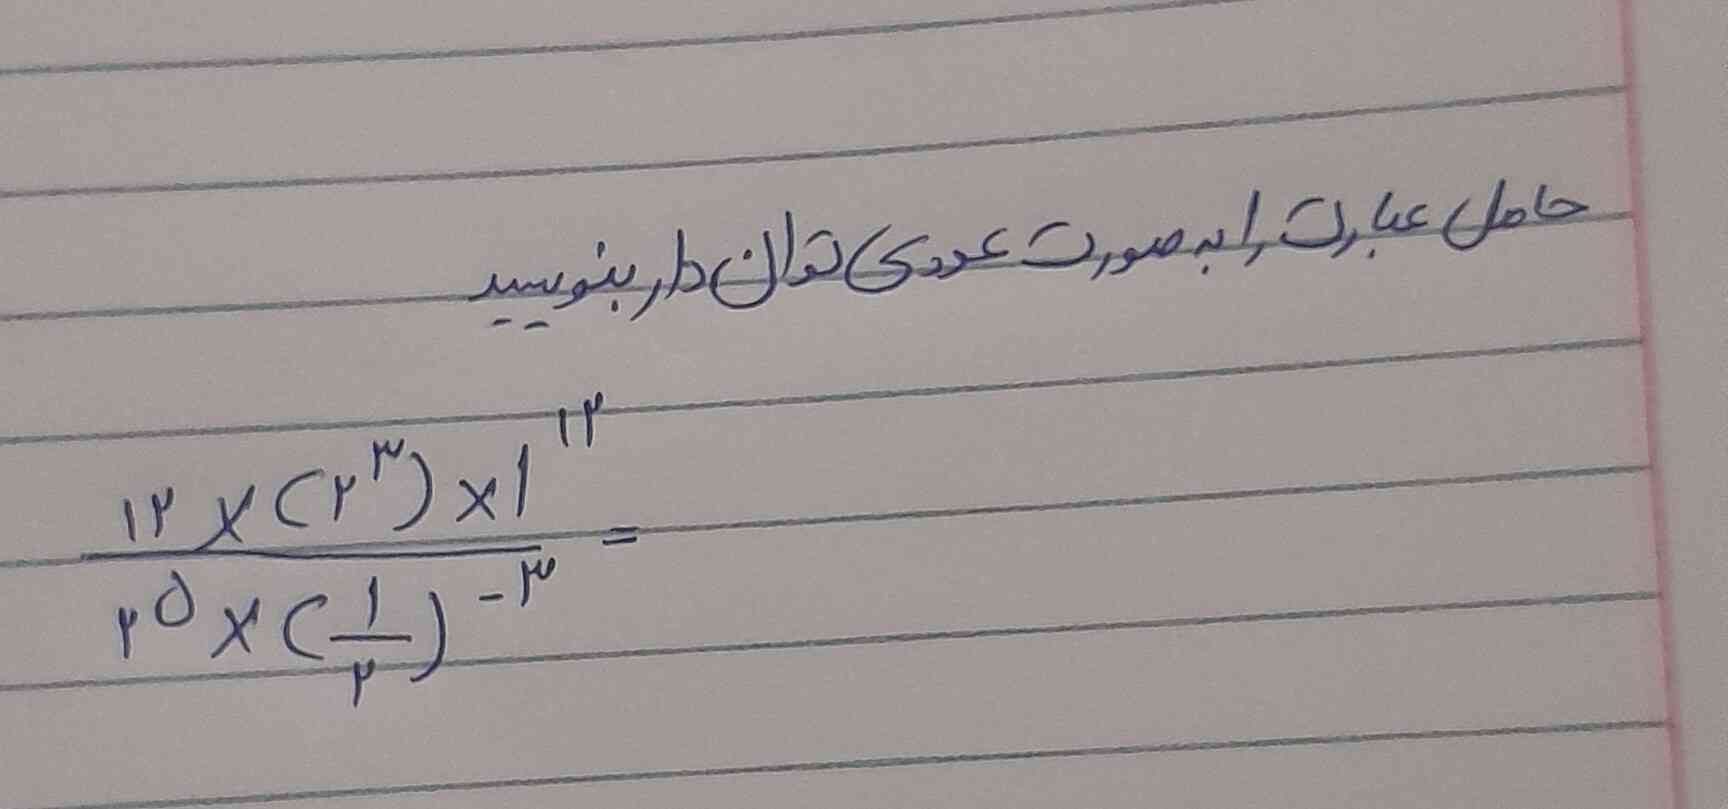 حاصل عبارت را به صورت عددی توان دار بنویسید
۱۲ × (۲^۳) × ۱^۱۲
۲^۵ × (۱/۲)^-۳ =